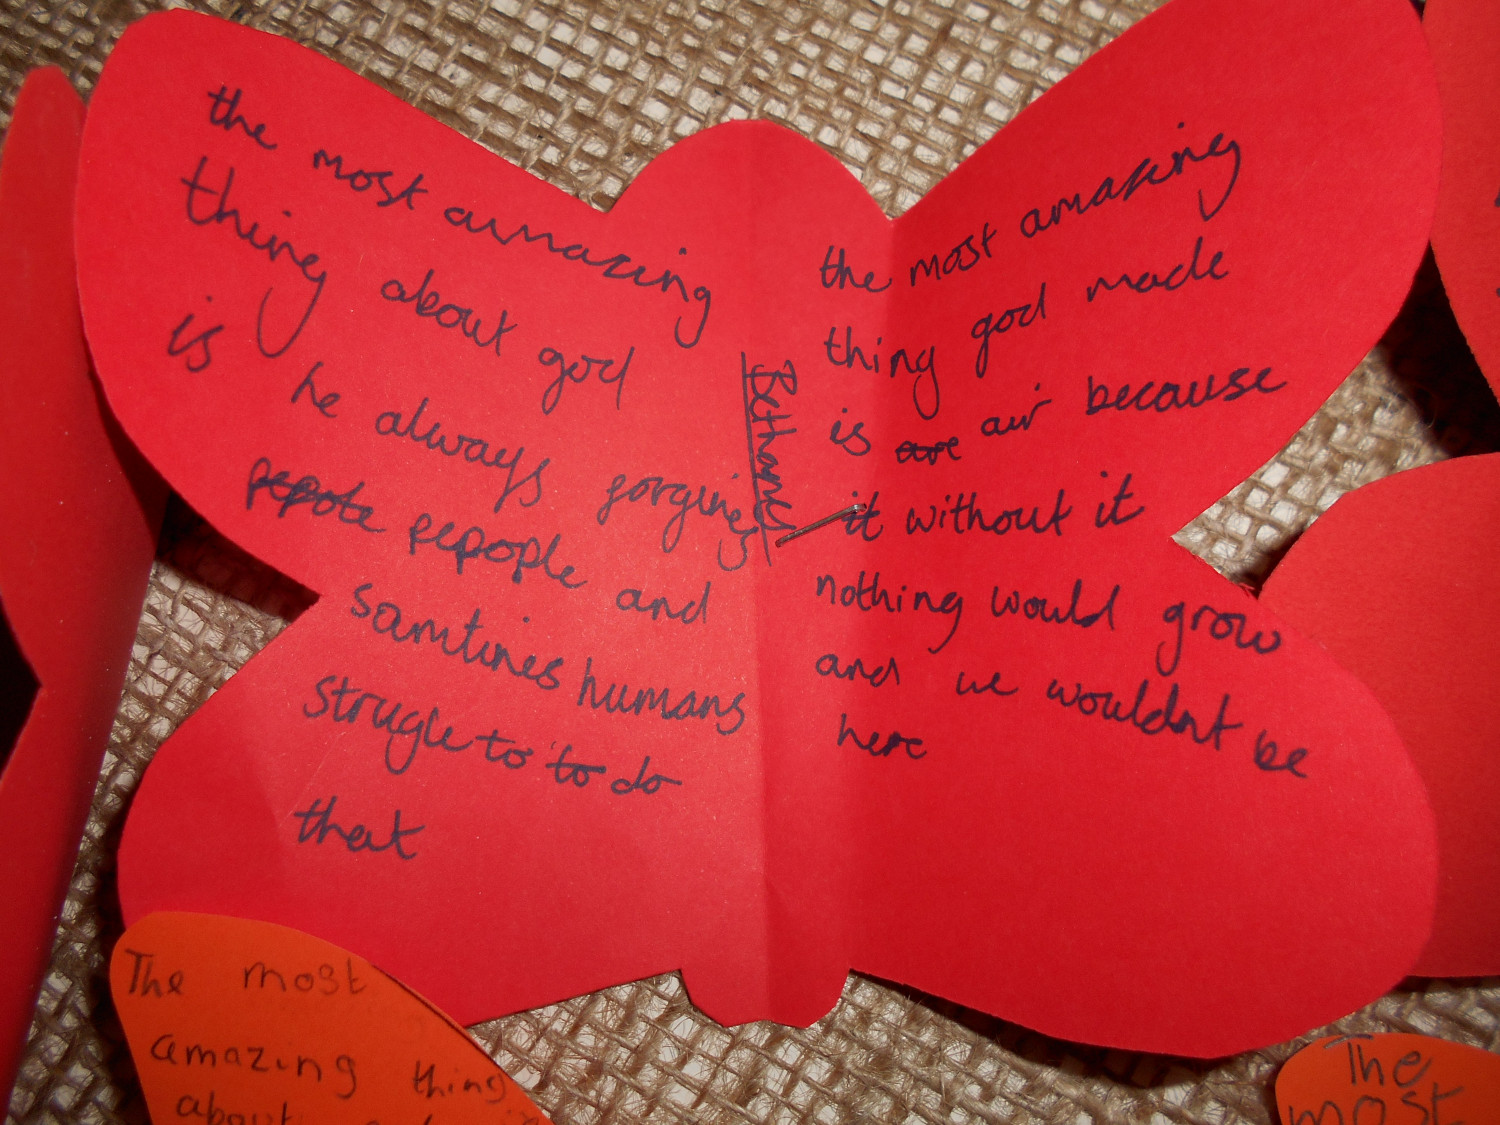 the most amazing
thing about god
is he always forgives
pepote pepople and
samtines humans
strugle to to do
that
Bethany
the most amazing
thing god made
is are air because
it without it
nothing would grow
and we wouldnt be
here
The most
amazing thing
about
The
most